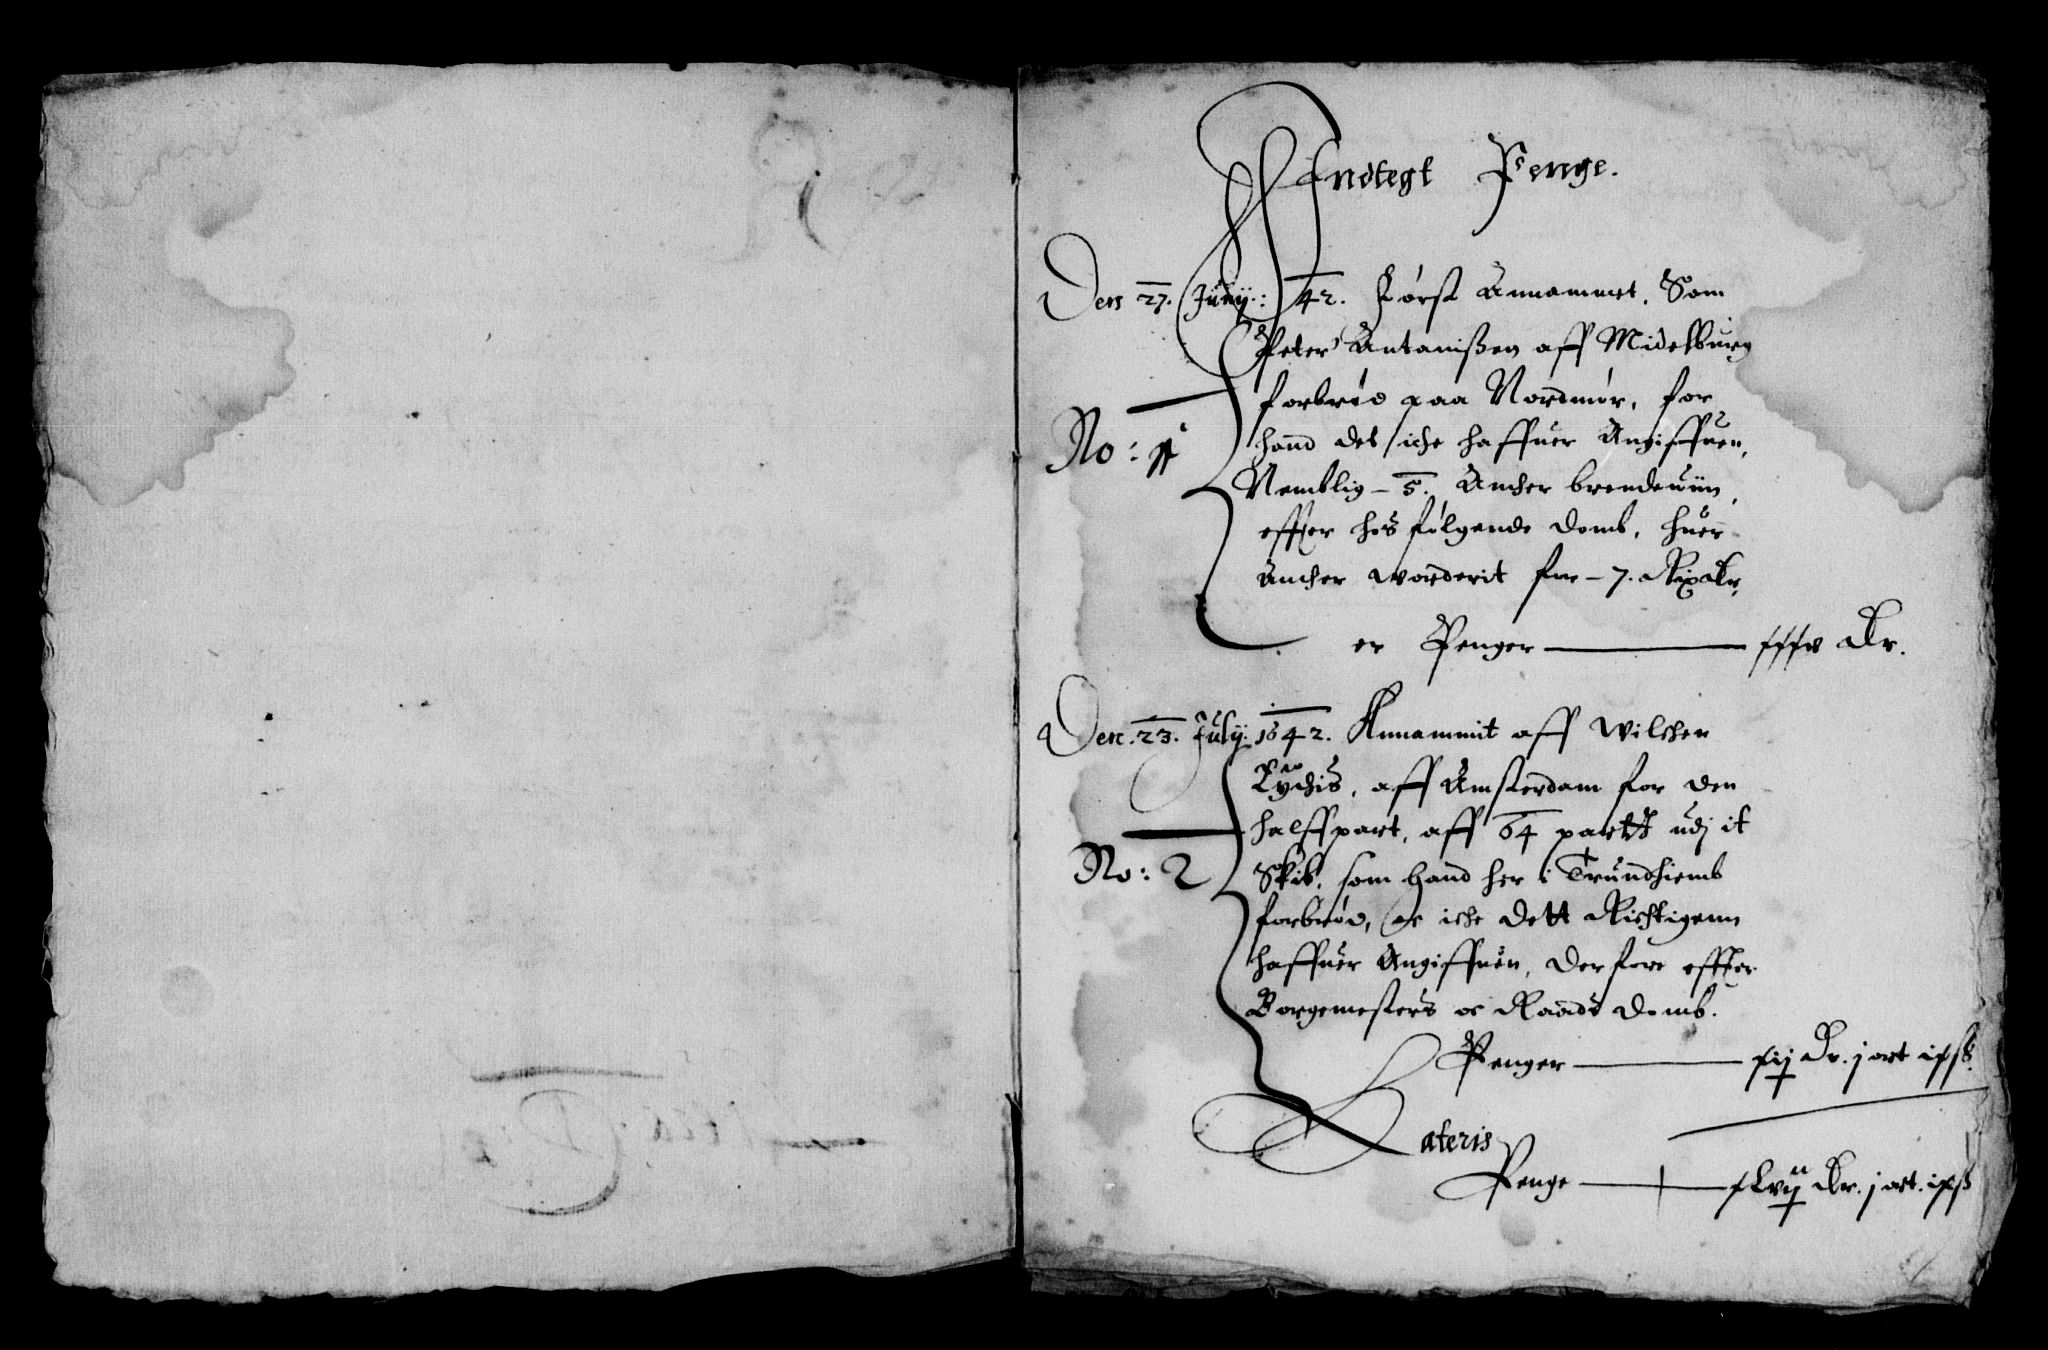 Indtegt Penge.
Den 27. Junij: 42. Først Annammet, Som
Peter Antanißen aff Midelburg
forbrød paa Nordmør, for
hand det iche haffuer Angiffuen,
No: 1
Nemblig – 5. Ancher brendewiin,
effter hos følgende Domb, huer
Ancher worderit for – 7. Rixdlr,
er Penger xxxv Dlr.
Den. 23. Julij. 1642. Annammit aff Wilchen
aff Amsterdam for den
halffpart, aff 64 partt udj it
No: 2
Skib, som hand her i Trundhiemb
forbrød, oc iche dett Richtigenn
haffuer Angiffuen, Derfore effter
Borgemesters oc Raads Domb.
Penger Dlr. j ort
Lateris
Penge Dlr. j ort.